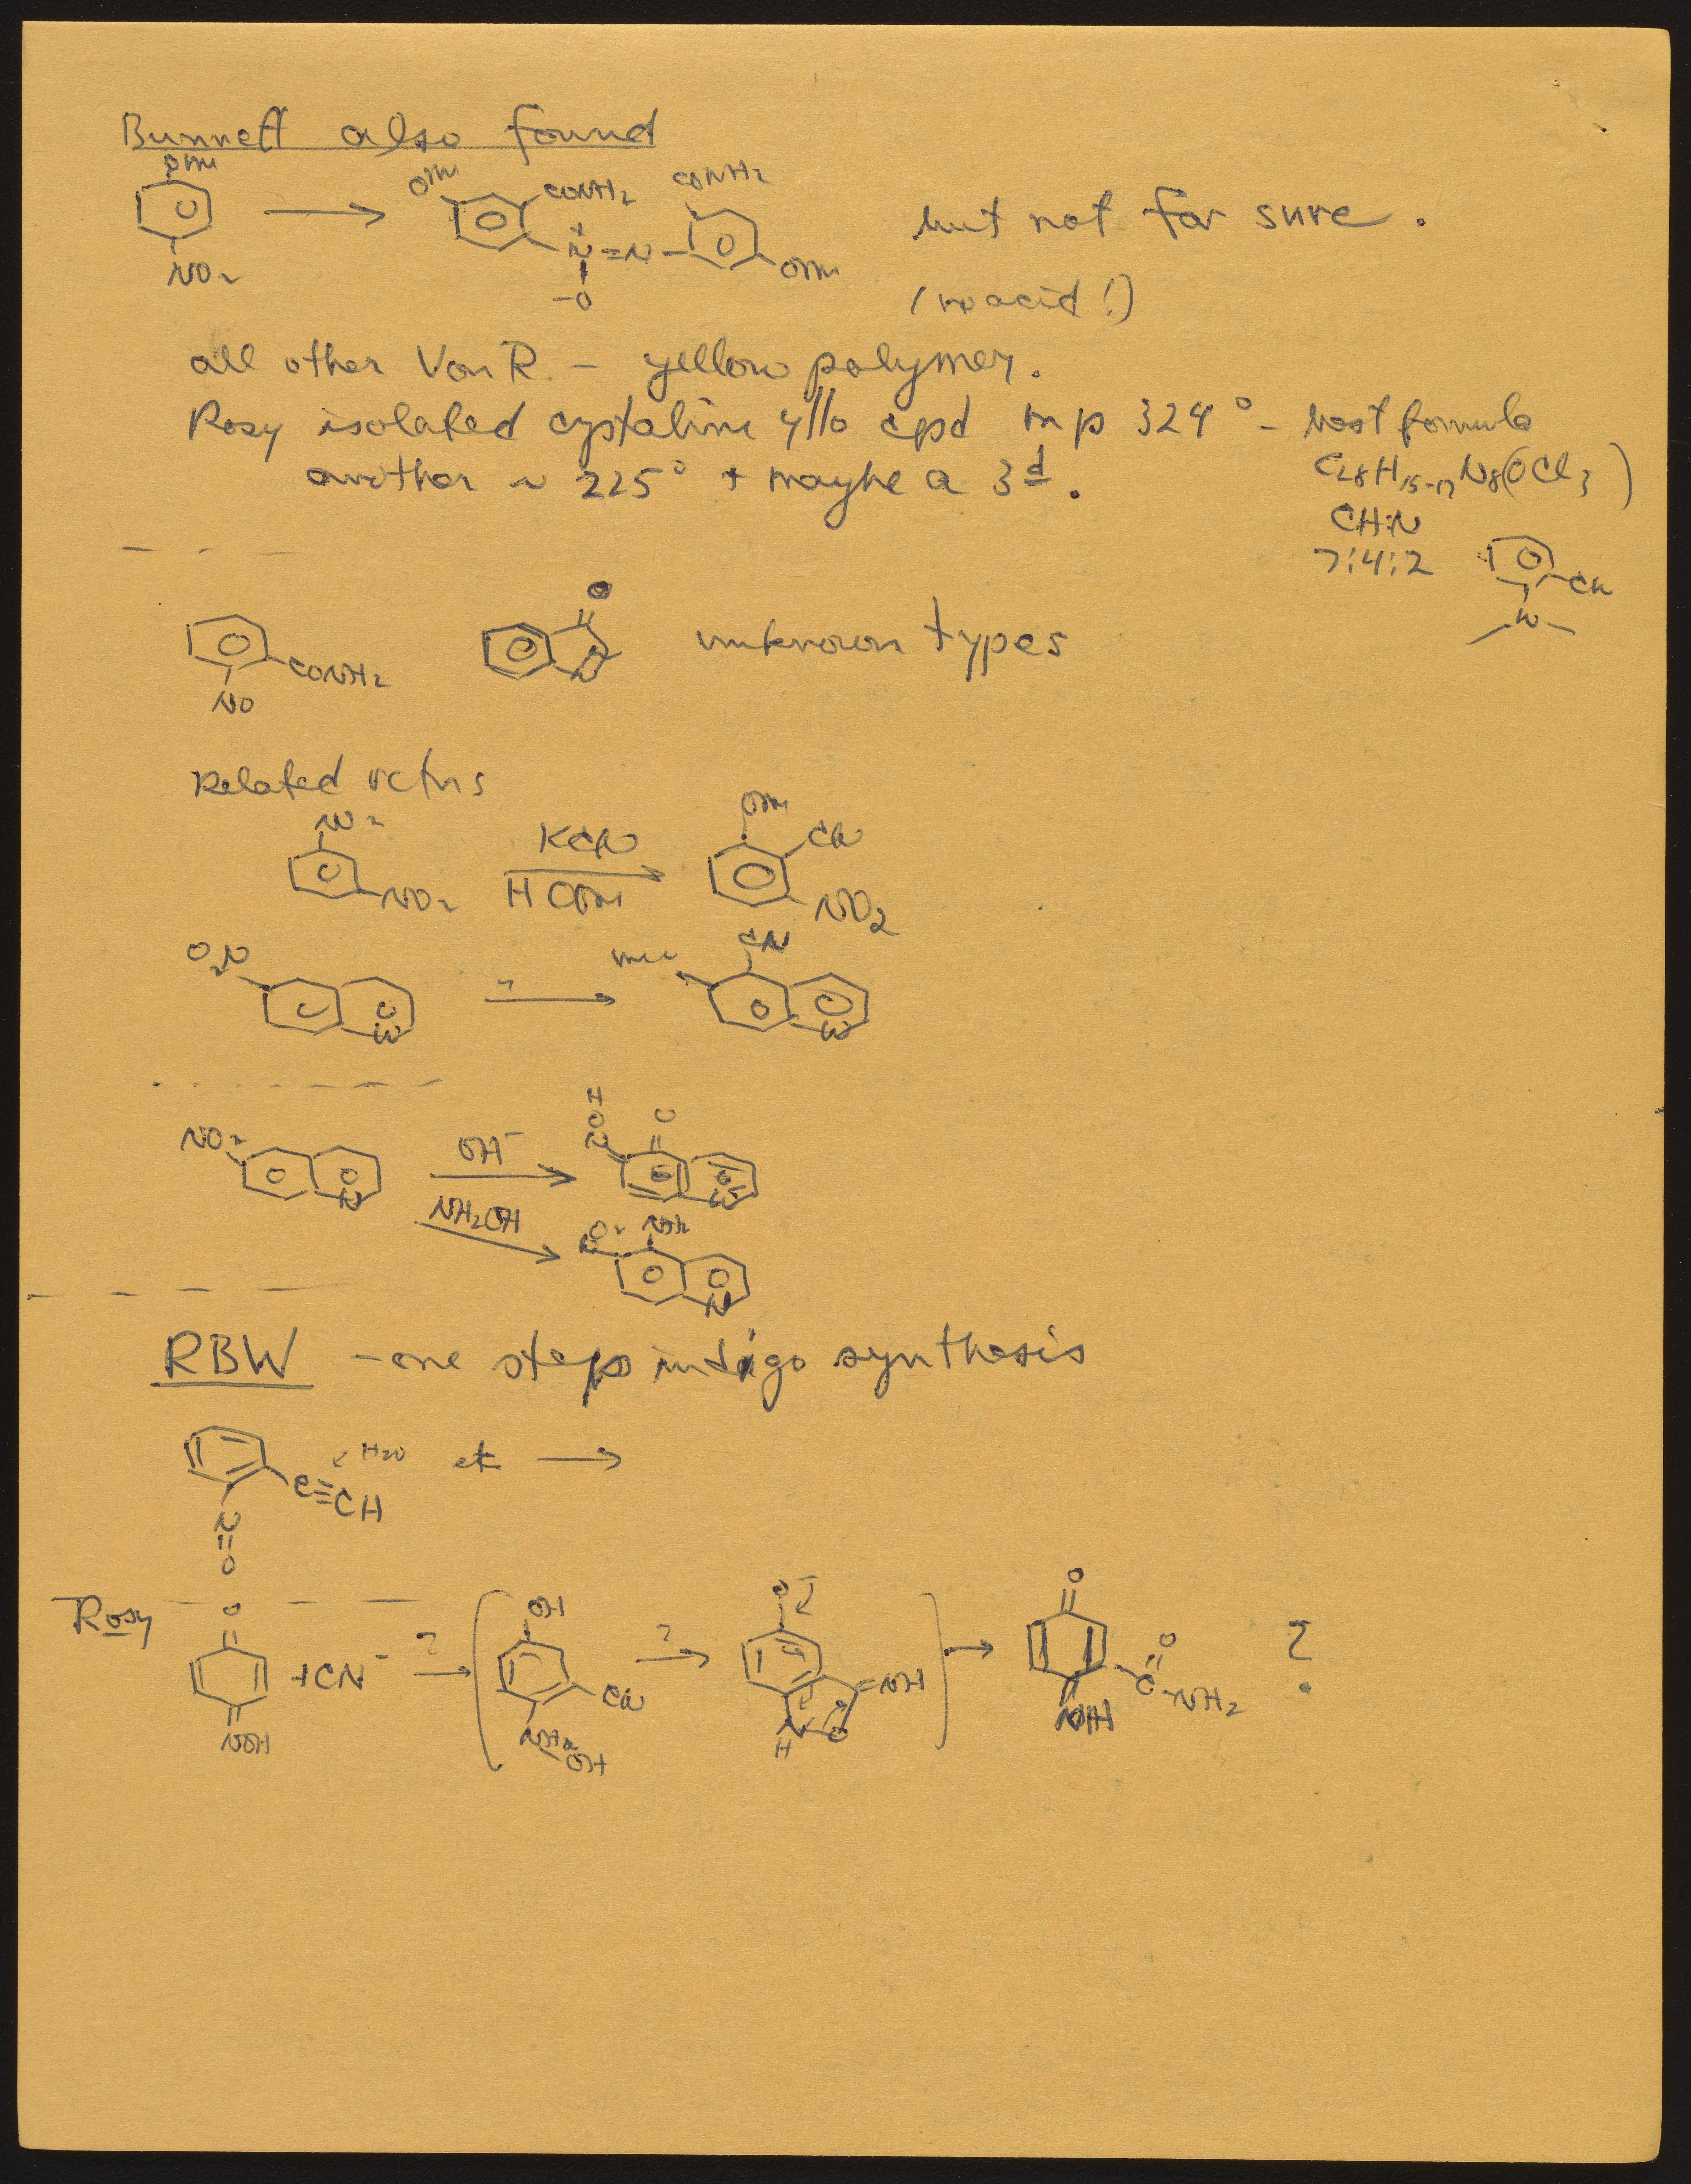 Bunnett also found
OMe
NO2
OMe CONH2 CONH2
N+=N
-O
OMe
but not for sure.
(no acid!)
all other Von R. – yellow polymer.
Rosy isolated cystaline yllo cpd mp 324° – best formula
another ~ 225° + maybe a 3d.
C28H15-17N8(OCl3)
CHN
7:4:2
CN
N
CONH2
NO
O
N
N
unknown types
Related rctns
NO2
NO2
KCN
HOMe
OMe
CN
NO2
O2N
N
?
CN
N
NO2
N
OH-
NH2OH
HON
O
N
NO2 NH2
N
RBW – one steps indigo synthesis
C≡CH
H2O etc
N
O
Rosy
O
NOH
+CN-
?
OH
CN
NH
OH
?
O-
NH
N
H
O
O
NH
O
C-NH2
?